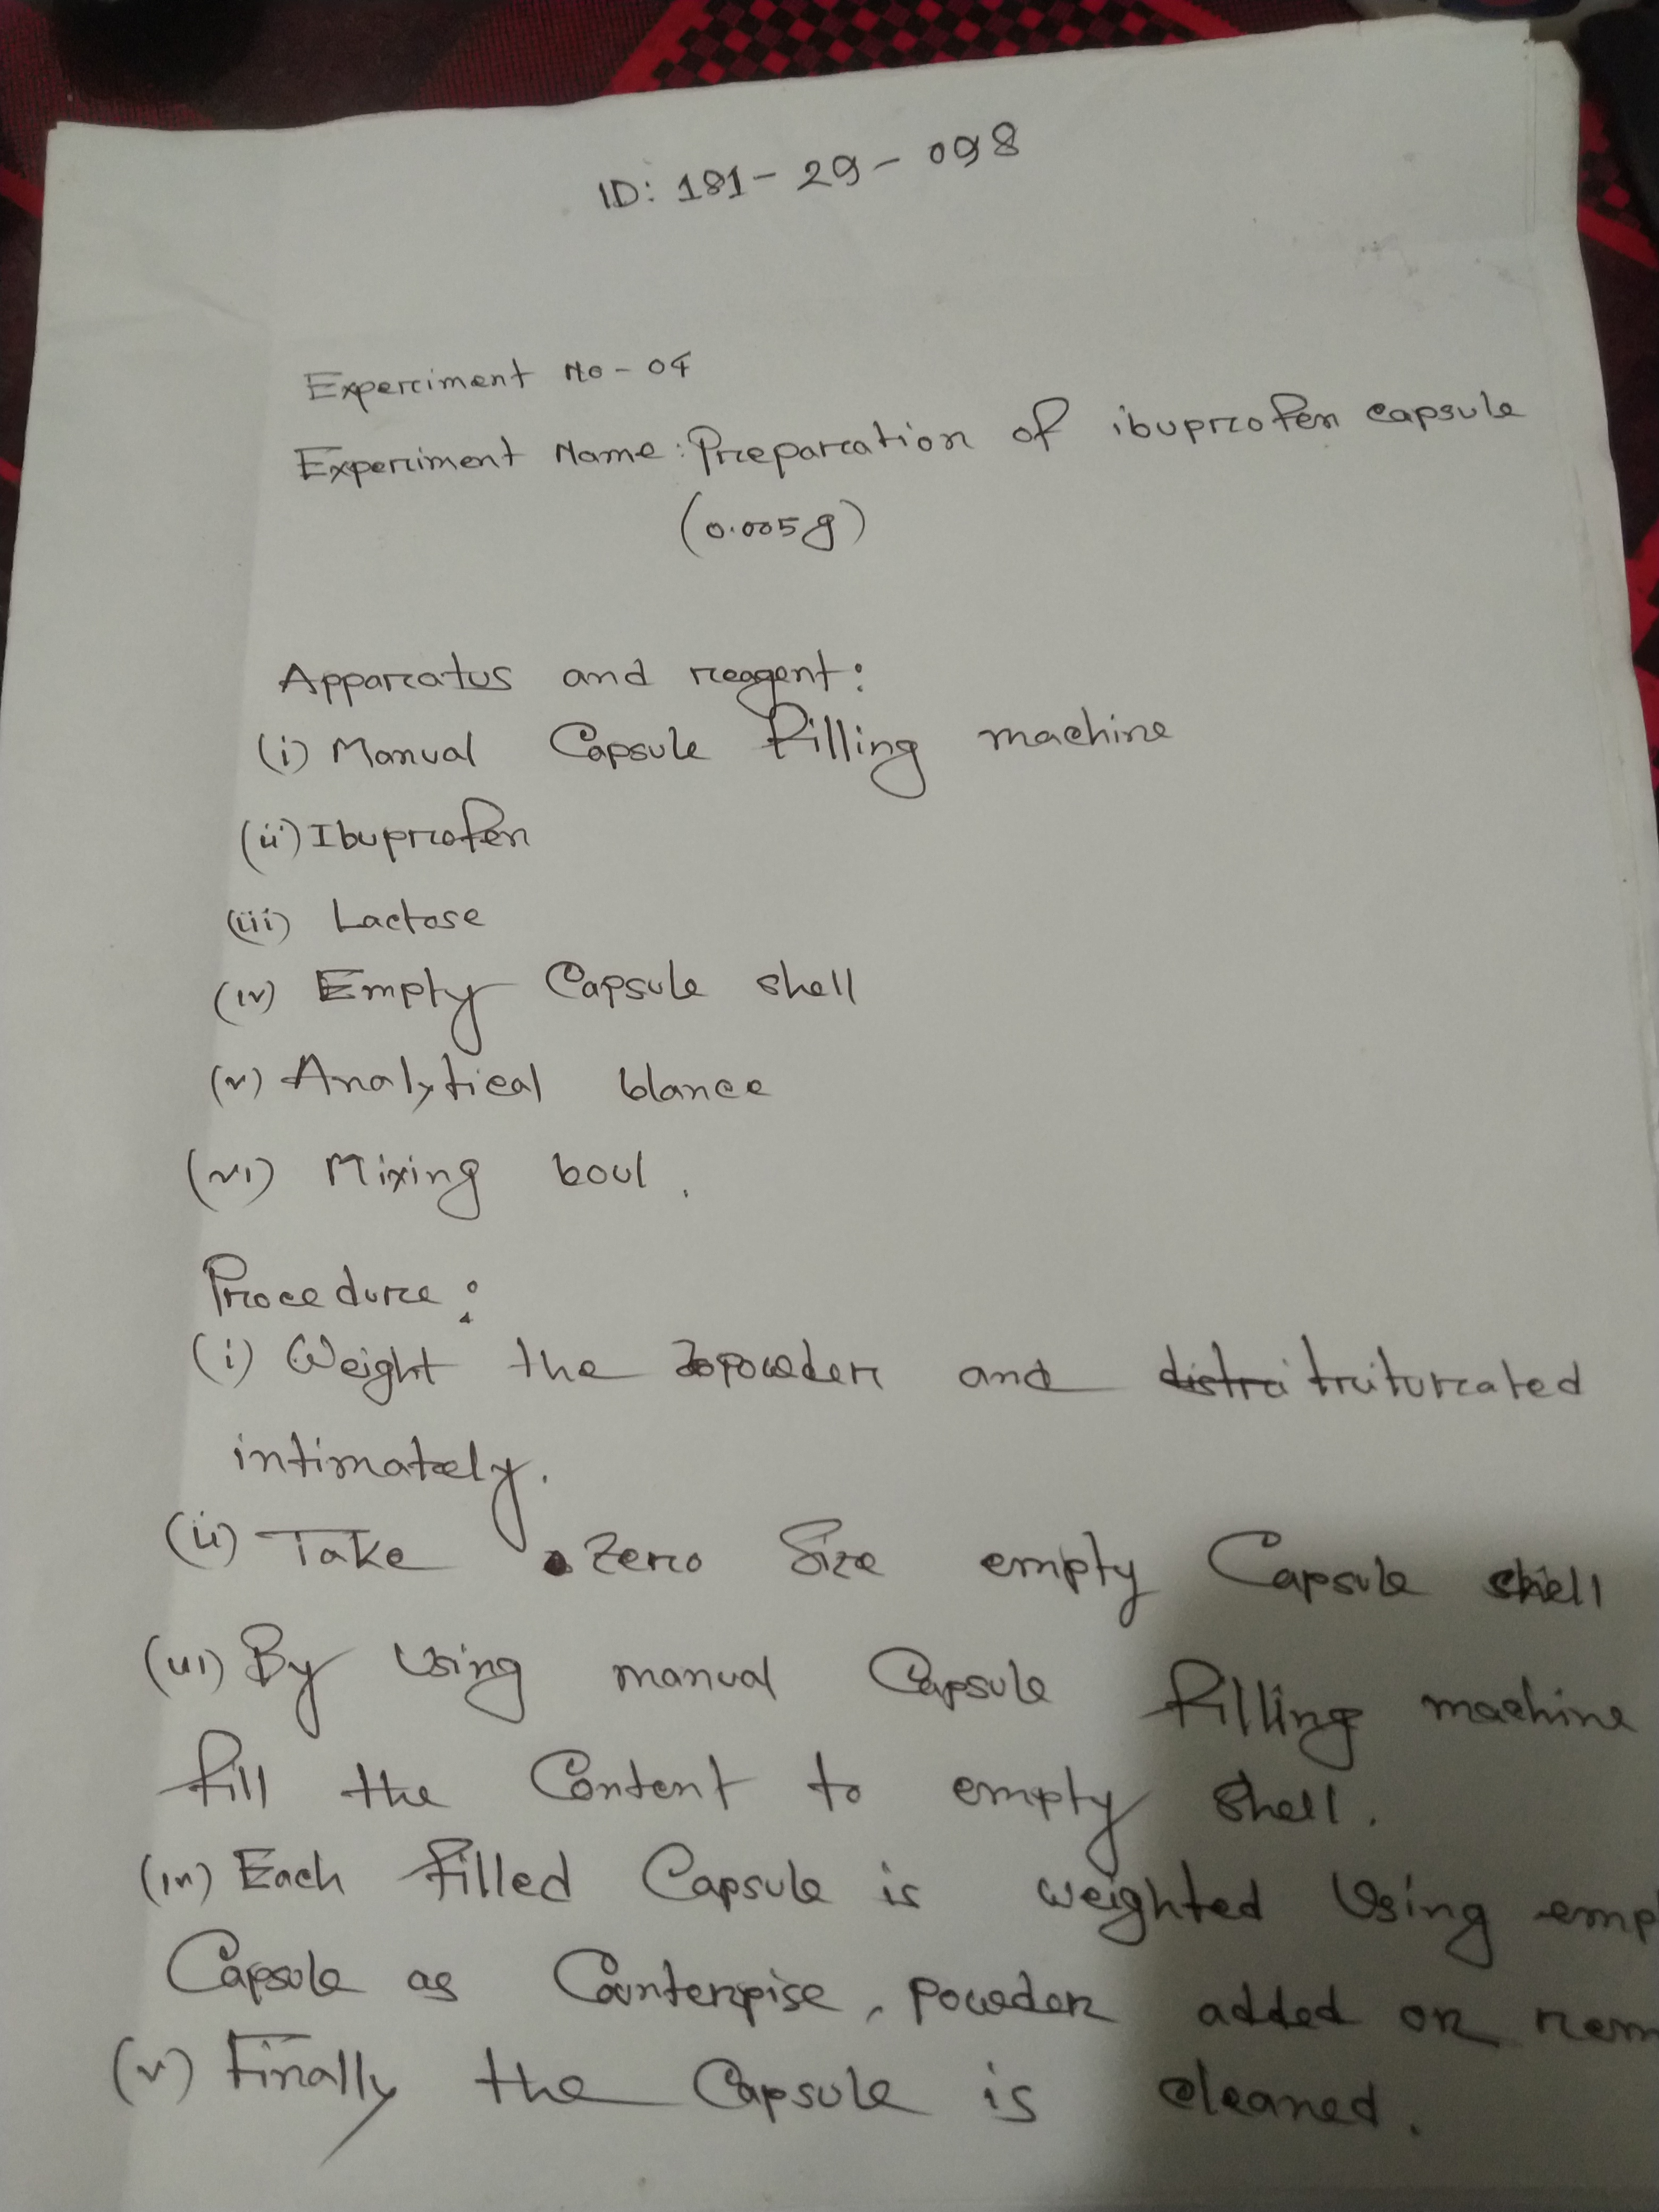 ID: 181-29-098
Experiment No-04
Experiment Name: Preparation of ibuprofen capsule
(0.005g)
Apparatus and reagent:
(i) Manual Capsule filling machine
(ii) Ibuprofen
(iii) Lactose
(iv) Empty Capsule shell
(v) Analytical blance
(vi) Mixing boul.
Procedure:
(i) Weight the powder and triturated
intimately.
(ii) Take Zero Size empty Capsule shell
(iii) By Using manual Capsule filling machine
fill the Content to empty shell.
(iv) Each filled Capsule is weighted Using emp
Capsule as Counterpise, powder added or rem
(v) Finally the Capsule is cleaned.